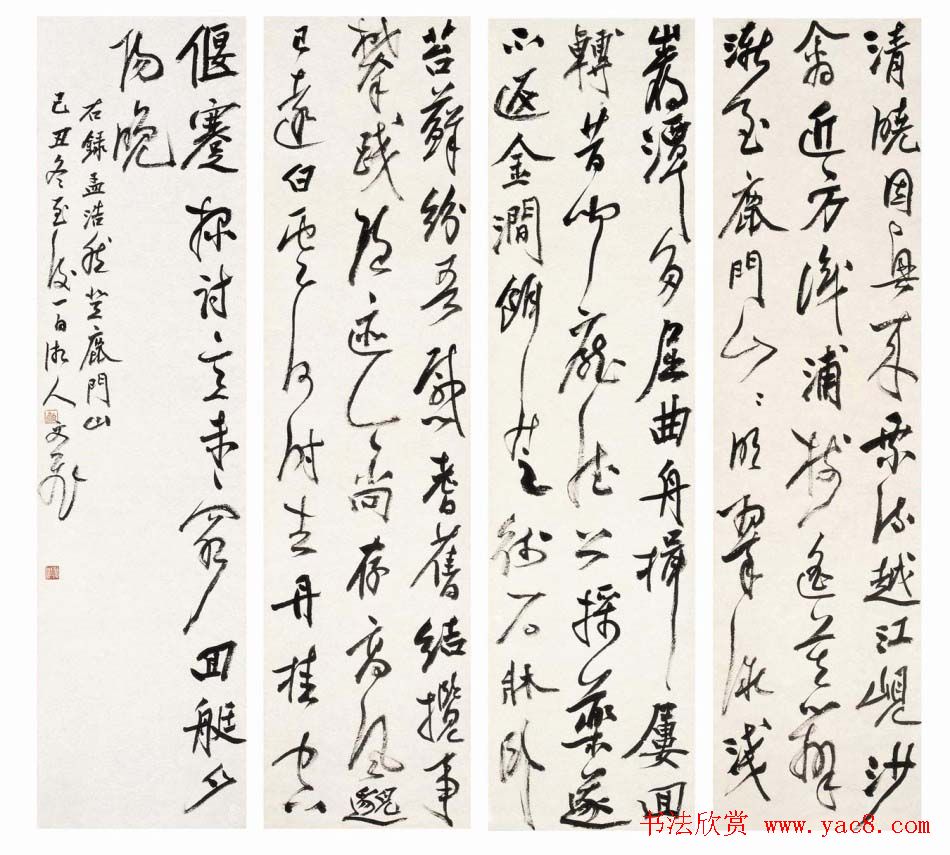 清曉因興來乘流越江峴沙
禽近方識浦樹遙莫辨
漸至鹿門山〻明翠微淺
巖潭多屈曲舟楫屢回
轉昔聞龐德公採藥遂
不返金澗餌芝術石牀臥
苔蘚紛吾感耆舊結攬事
攀踐隱迹今尚存高風邈
已遠白雲何時去丹桂空
偃蹇探討意未窮回艇夕
陽晚
右錄孟浩然登鹿門山
己丑冬至後一日湘人
书法欣赏 www.yac8.com